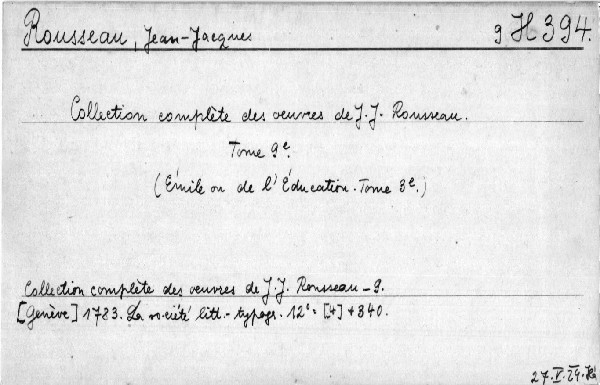 Rousseau, Jean-Jacques 9 H 394.
Collection complète des oeuvres de J. J. Rousseau.
Tome 9e.
(Émile ou de l'Éducation. Tome 3e.)
Collection complète des oeuvres de J. J. Rousseau - 9.
[Genève] 1783. La société litt.-typogr. 12°: [4] + 340.
27. V. 29.